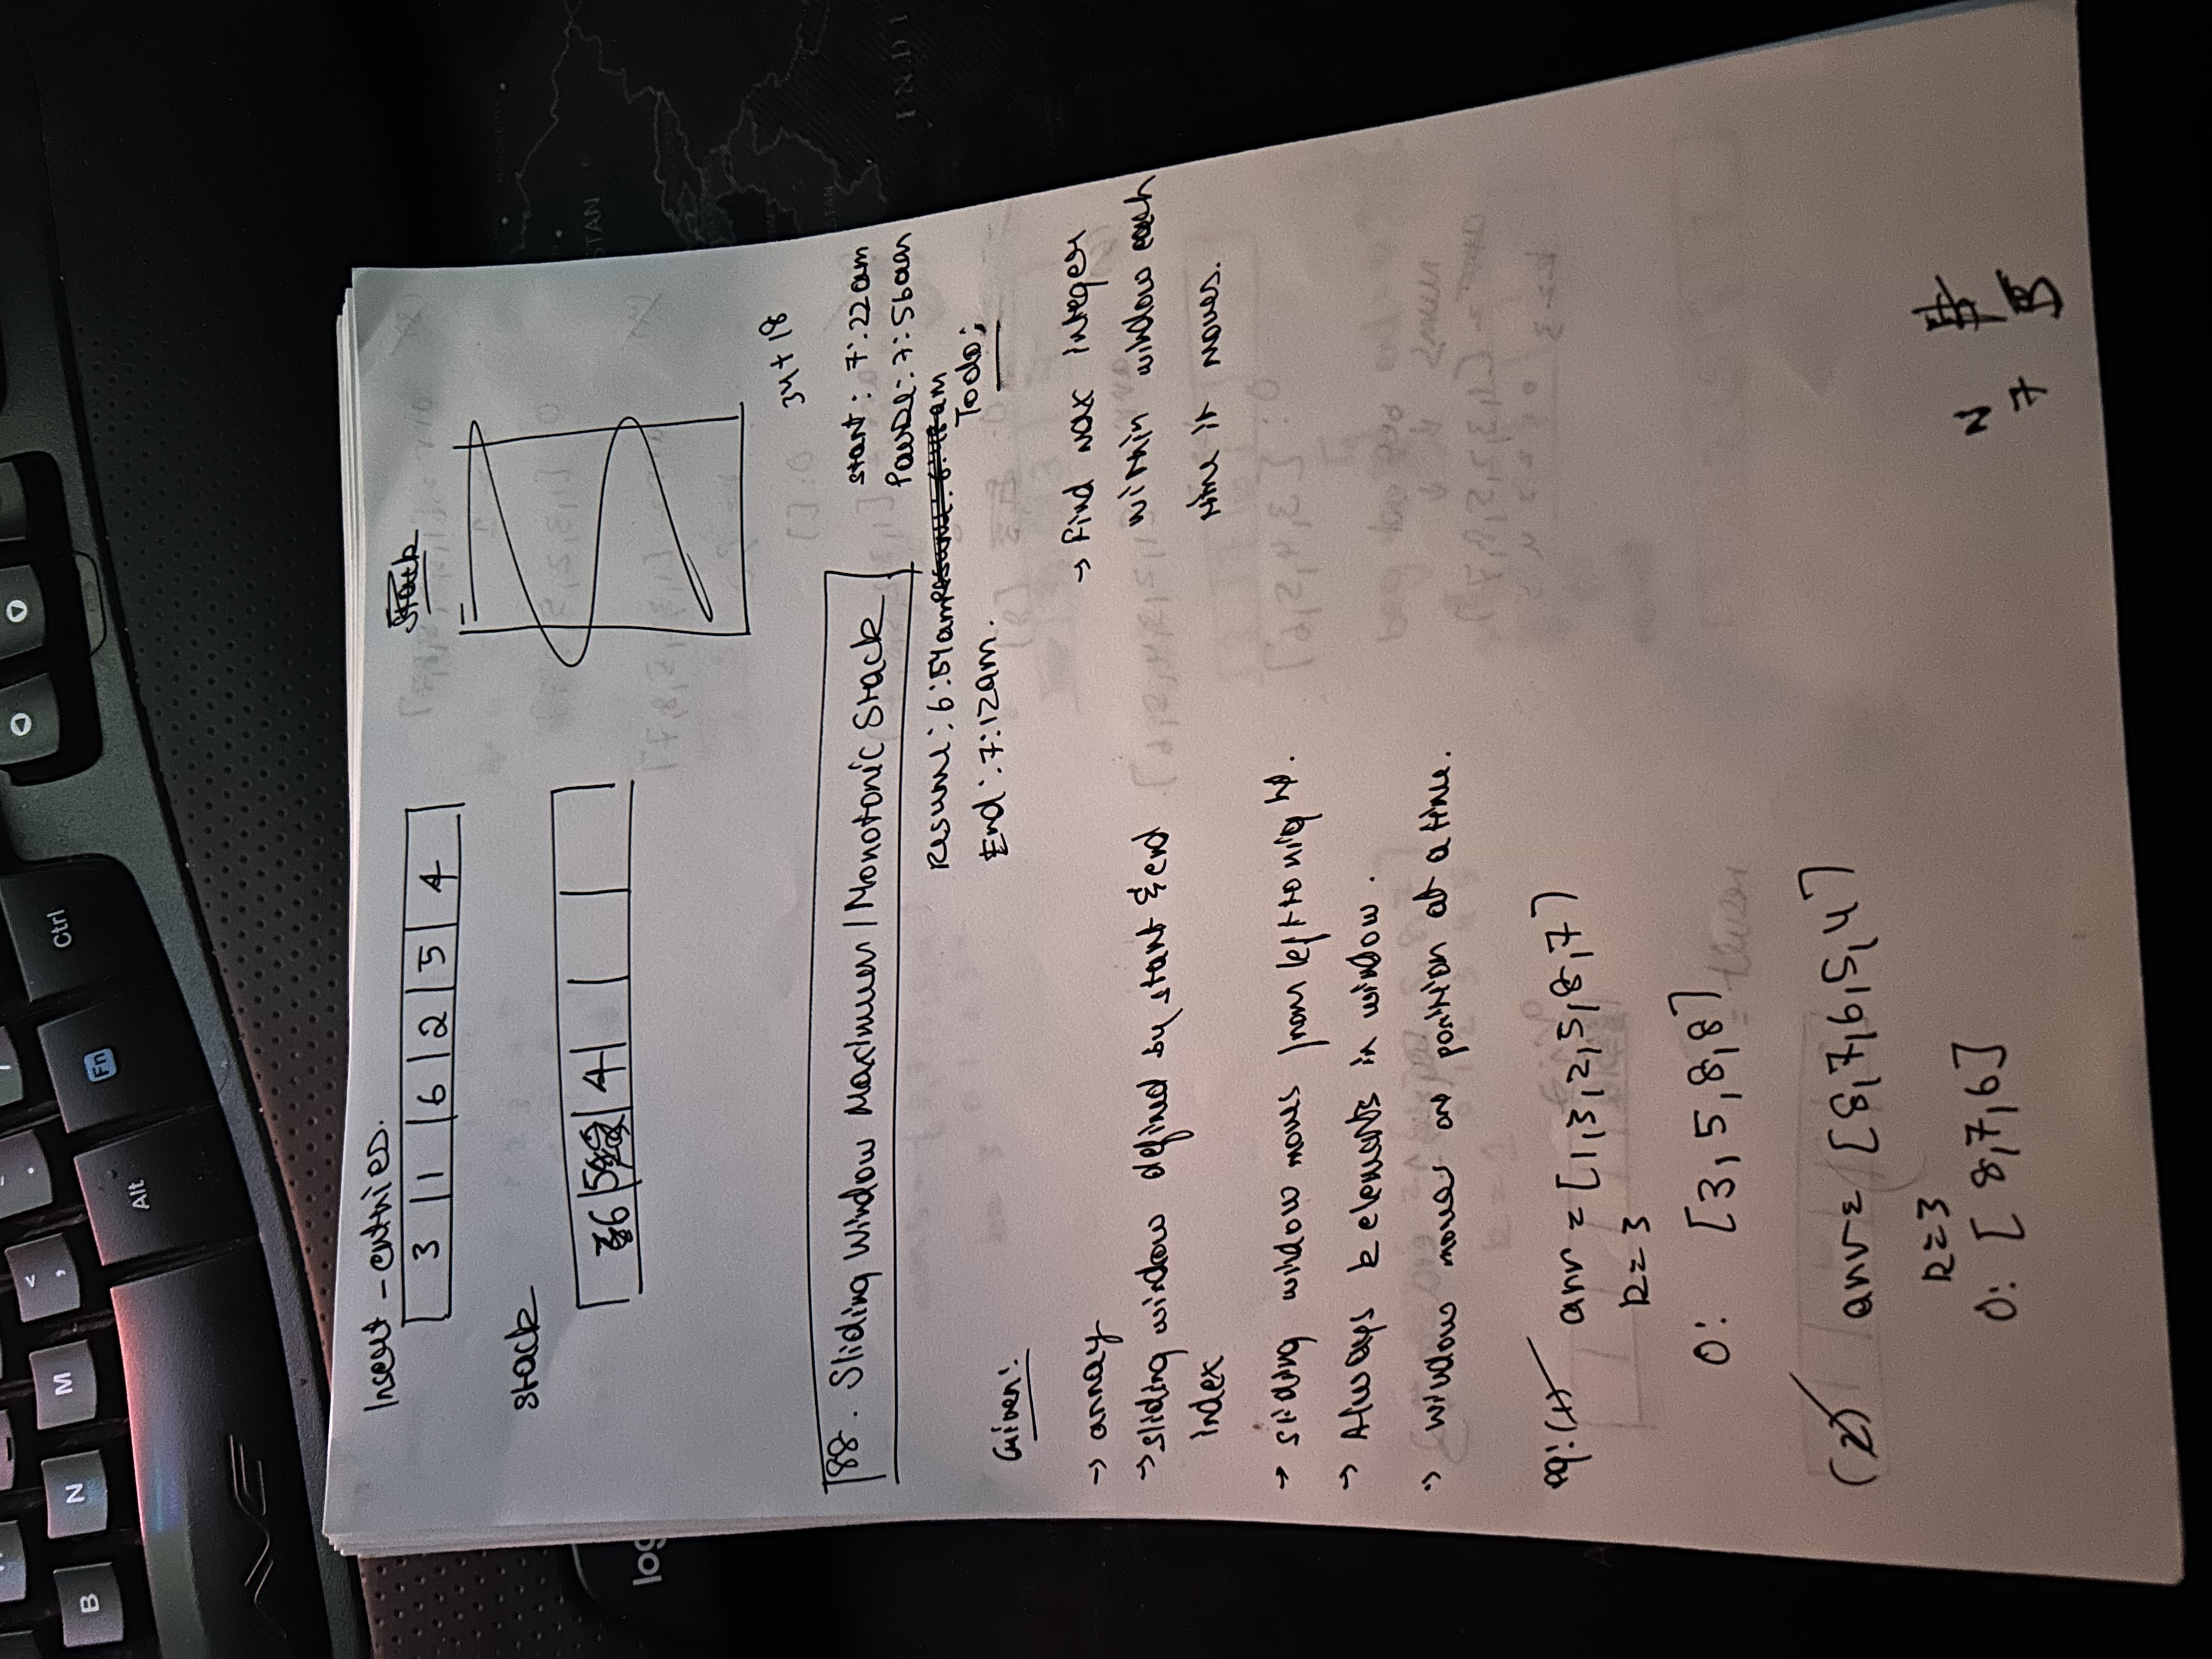 B N M < ,
Alt Fn Ctrl
Insert - entries.
3 1 6 2 5 4
Stack
stack
6 5 4
34 + 18
88. Sliding Window Maximum / Monotonic Stack
start: 7:22am
Pause: 7:56am
Resume: 6:54am Resume: 6:48am
End: 7:12am.
Todo:
Given:
→ array
→ sliding window defined by start & end
index
→ sliding window moves from left to right.
→ Always k elements in window.
→ window moves one position at a time.
→ Find max integer
within window each
time it moves.
eg: (1) arr = [1,3,2,5,8,7]
k = 3
O: [3,5,8,8]
(2) arr = [8,7,6,5,4]
k = 3
O: [8,7,6]
N
7 B